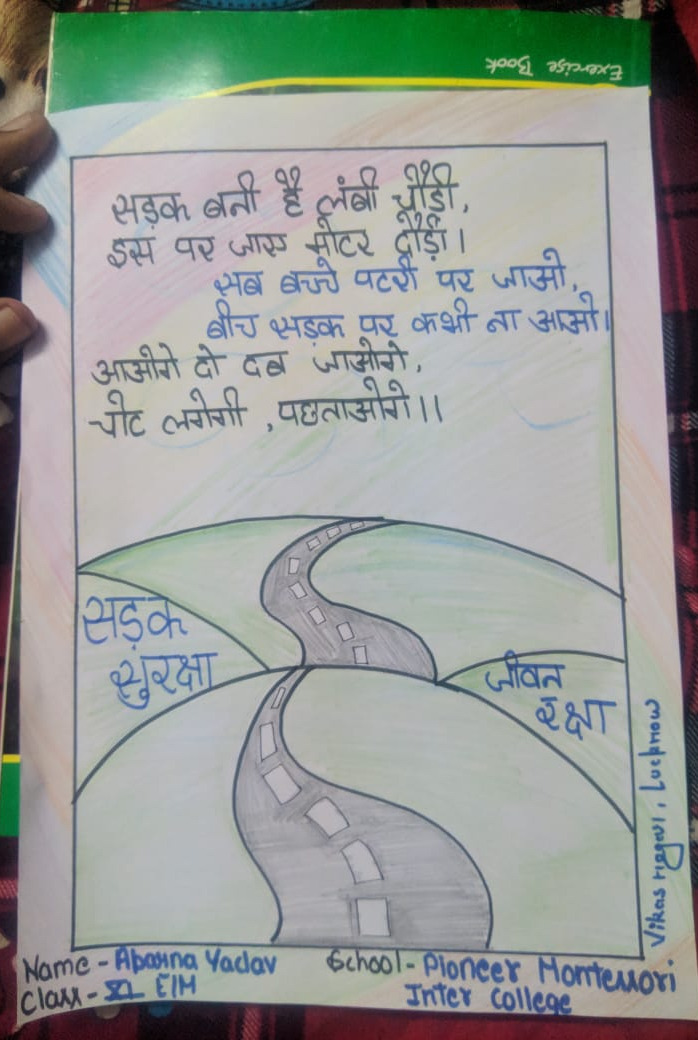 Exercise Book
सड़क बनी है लंबी चौड़ी,
इस पर जाए मोटर दौड़ी।
सब बच्चे पटरी पर जाओ,
बीच सड़क पर कभी ना आओ।
आओगे तो दब जाओगे,
चोट लगेगी ,पछताओगे।।
सड़क
सुरक्षा
जीवन
रक्षा
Vikas Nagar, Lucknow
Name - Abarna Yadav
Class - XI E1M
School - Pioneer Montessori
Inter College